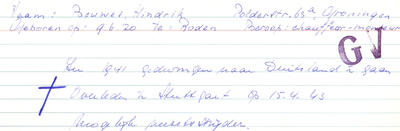 Naam: Bouwer, Hindrik Polderstr. 63a, Groningen
Geboren op: 9.6.20 Te: Roden Beroep: chauffeur
GV
In 1941 gedwongen naar Duitsland te gaan
Overleden te Stuttgart op 15.4.43
Mogelijk verzetsstrijder.